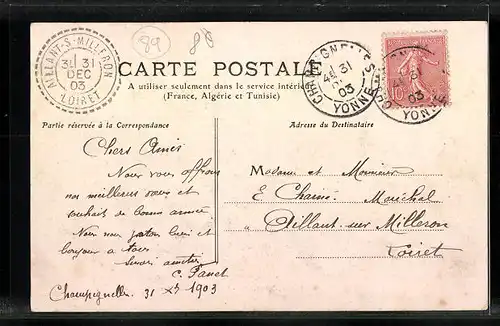 89 88
AILLANT-S-MILLERON
31
DEC
03
LOIRET
CHAMPIGNELLES
4E 31
03
YONNE
10
31
03
CARTE POSTALE
A utiliser seulement dans le service intérieur
(France, Algérie et Tunisie)
Partie réservée à la Correspondance
Adresse du Destinataire
Chers Amis
Nous vous offrons
nos meilleurs vœux et
souhaits de bonne année.
Nous nous portons bien et
bonjour à tous
C. Panet
Champignelles 31 Xbre 1903
Madame et Monsieur
E Chainé Maréchal
à Aillant sur Milleron
Loiret